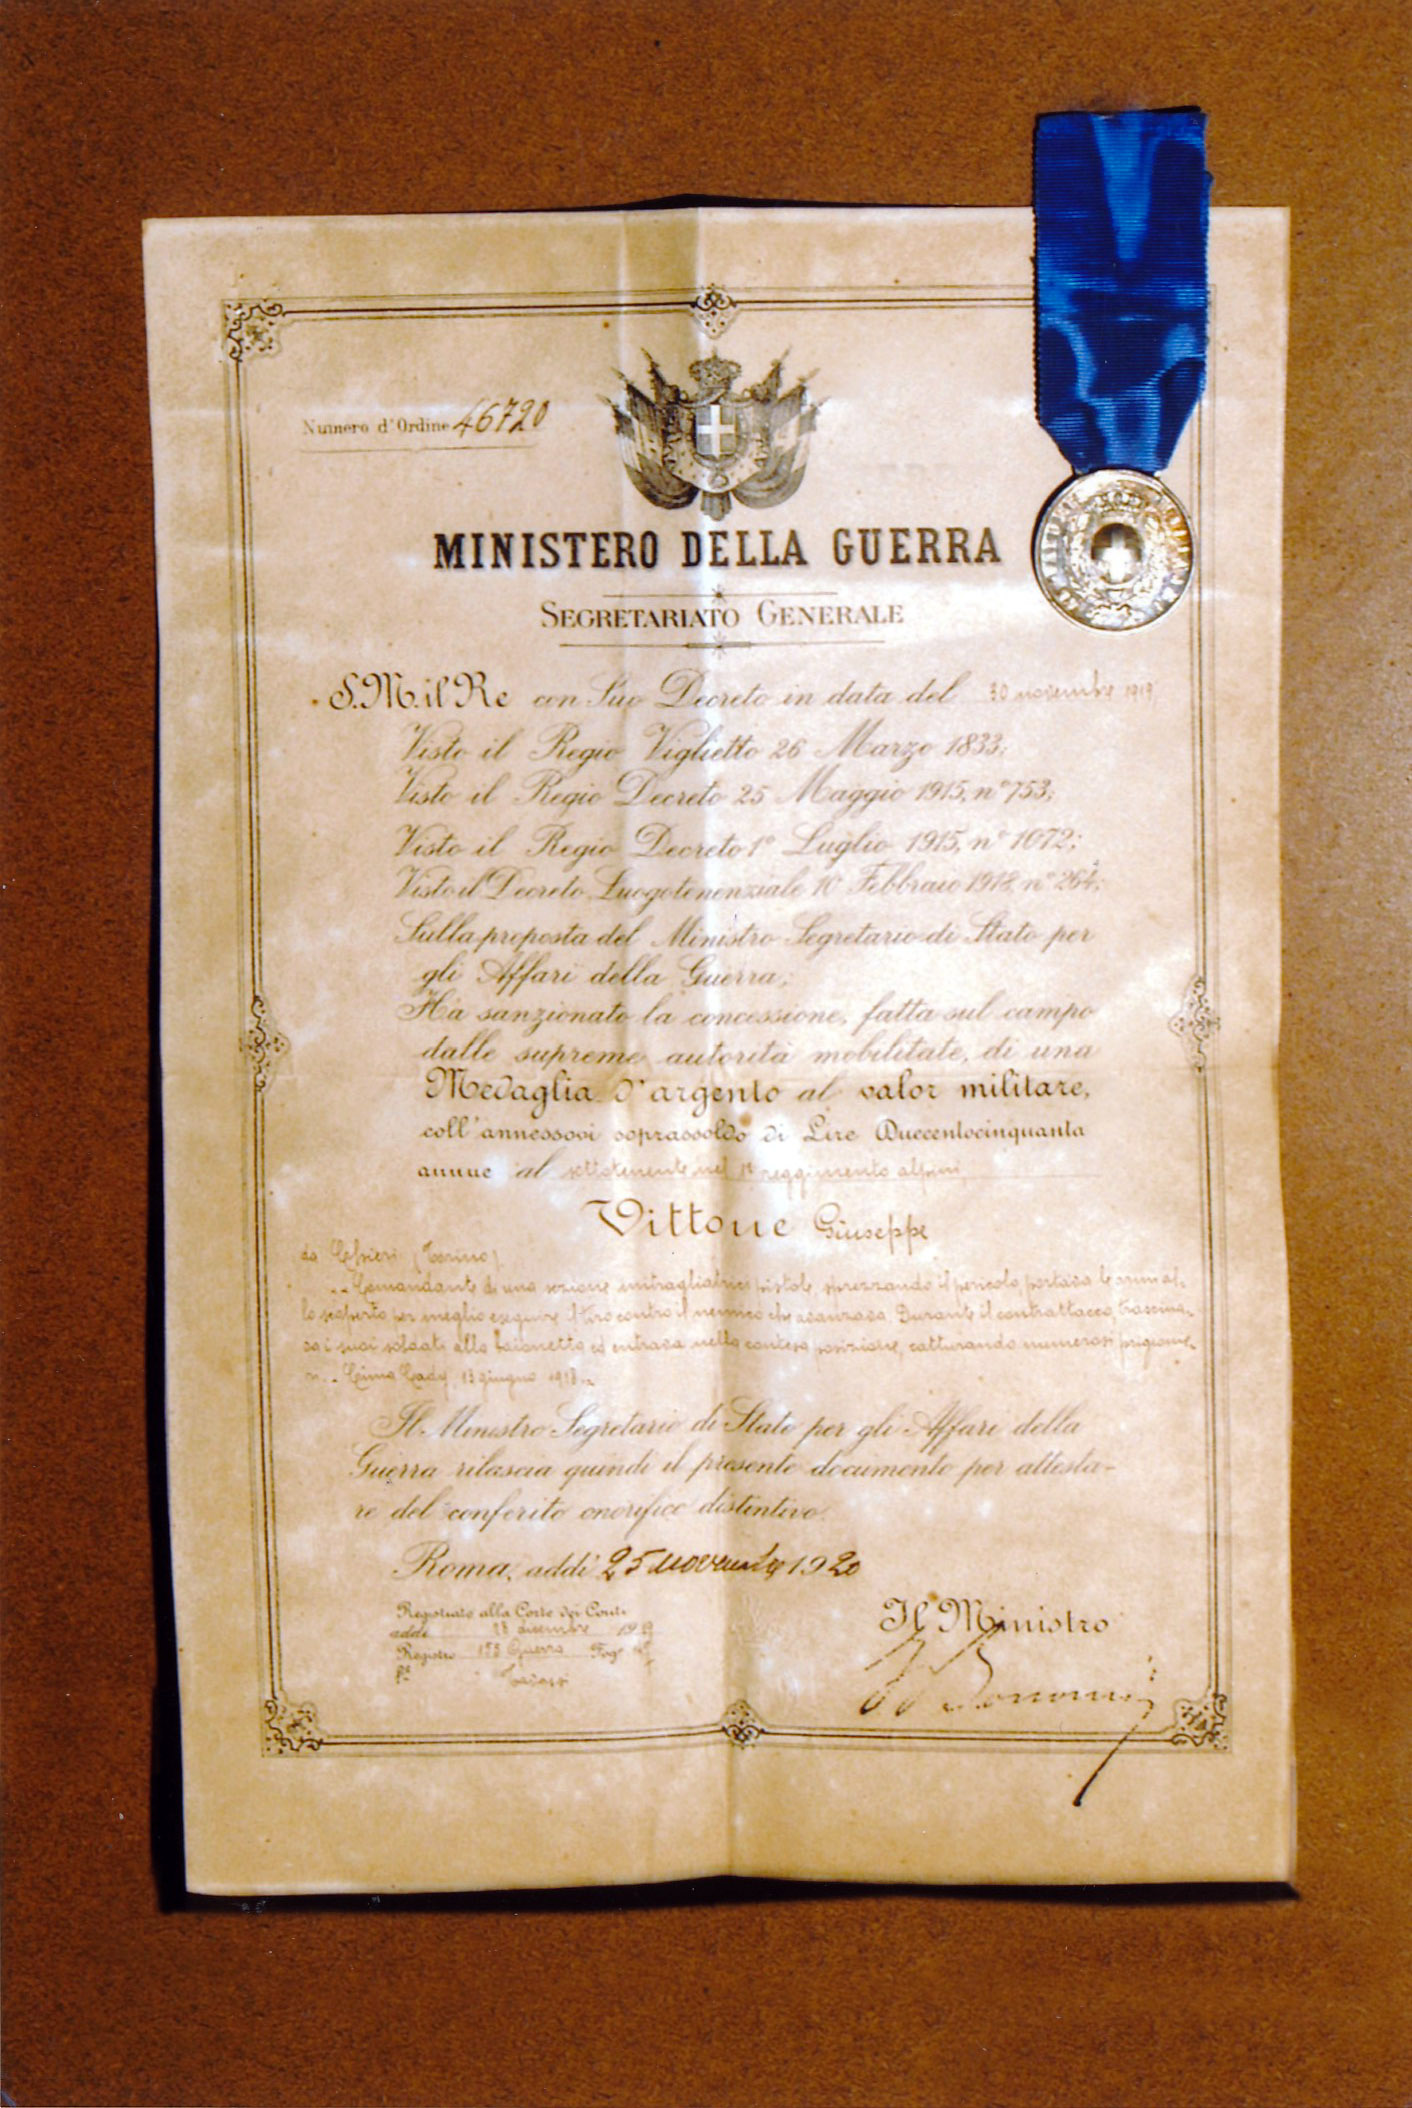 Numero d'Ordine 46720
MINISTERO DELLA GUERRA
SEGRETARIATO GENERALE
S.M. il Re con Suo Decreto in data del 30 novembre 1919
Visto il Regio Viglietto 26 Marzo 1833;
Visto il Regio Decreto 25 Maggio 1915, n° 753;
Visto il Regio Decreto 1° Luglio 1915, n° 1072;
Visto il Decreto Luogotenenziale 10 Febbraio 1918, n° 264;
Sulla proposta del Ministro Segretario di Stato per
gli Affari della Guerra;
Ha sanzionato la concessione, fatta sul campo
dalle supreme autorità mobilitate, di una
Medaglia d'argento al valor militare,
coll'annessovi soprassoldo di Lire Duecentocinquanta
annue al sottotenente nel 1° reggimento alpini
Vittone Giuseppe
da (Torino)
Comandante di una sezione mitragliatrici pistole, sprezzando il pericolo, portava le armi al-
lo scoperto per meglio eseguire il tiro contro il nemico che avanzava. Durante il contrattacco, trascina-
va i suoi soldati alla baionetta ed entrava nella contesa posizione, catturando numerosi prigionie-
ri. - Cima Cady, 13 giugno 1918.
Il Ministro Segretario di Stato per gli Affari della
Guerra rilascia quindi il presente documento per attesta-
re del conferito onorifico distintivo.
Roma, addì 25 novembre 1920
Registrato alla Corte dei Conti
addì 28 dicembre 1919
Registro 158 Guerra Fog°
Il Ministro
Bonomi
AL VALORE MILITARE